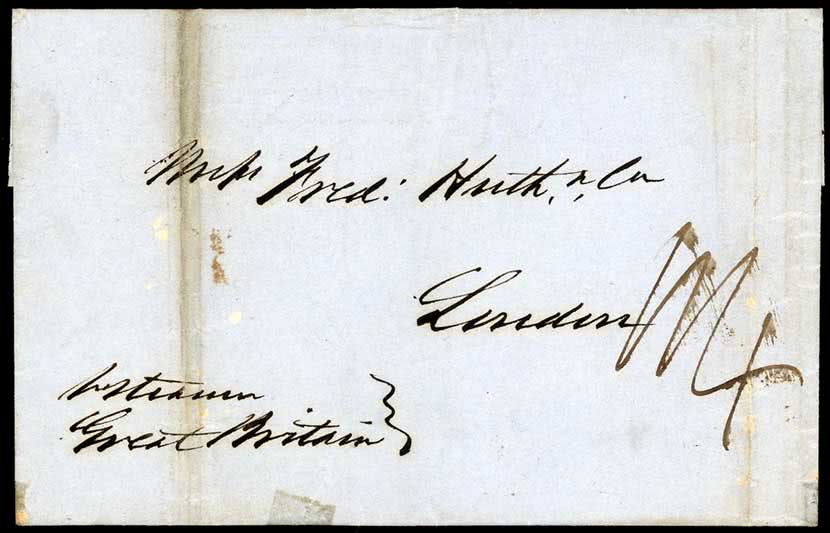 Messrs Fred: Huth, & Co
London
pr Steamer
Great Britain